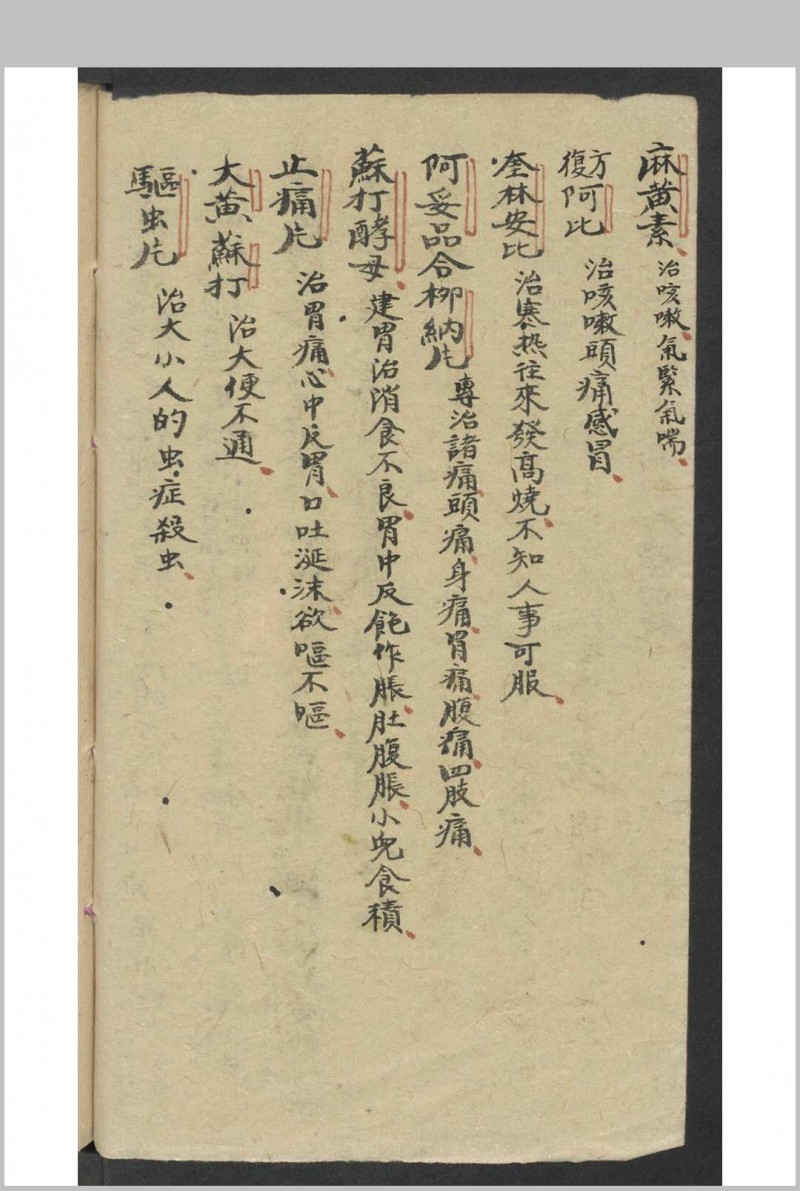 麻黄素、治咳嗽、氣緊氣喘、
復方阿比 治咳嗽頭痛感冒、
奎林安比 治寒热往來發高燒、不知人事可服、
阿妥品合柳納片 專治諸痛、頭痛、身痛、胃痛、腹痛、四肢痛、
蘇打酵母、建胃治消食不良、胃中反飽作脹、肚腹脹、小兒食積、
止痛片 治胃痛、心中反胃、口吐涎沫、欲嘔不嘔、
大黄蘇打 治大便不通、
驅虫片 治大小人的虫症殺虫、